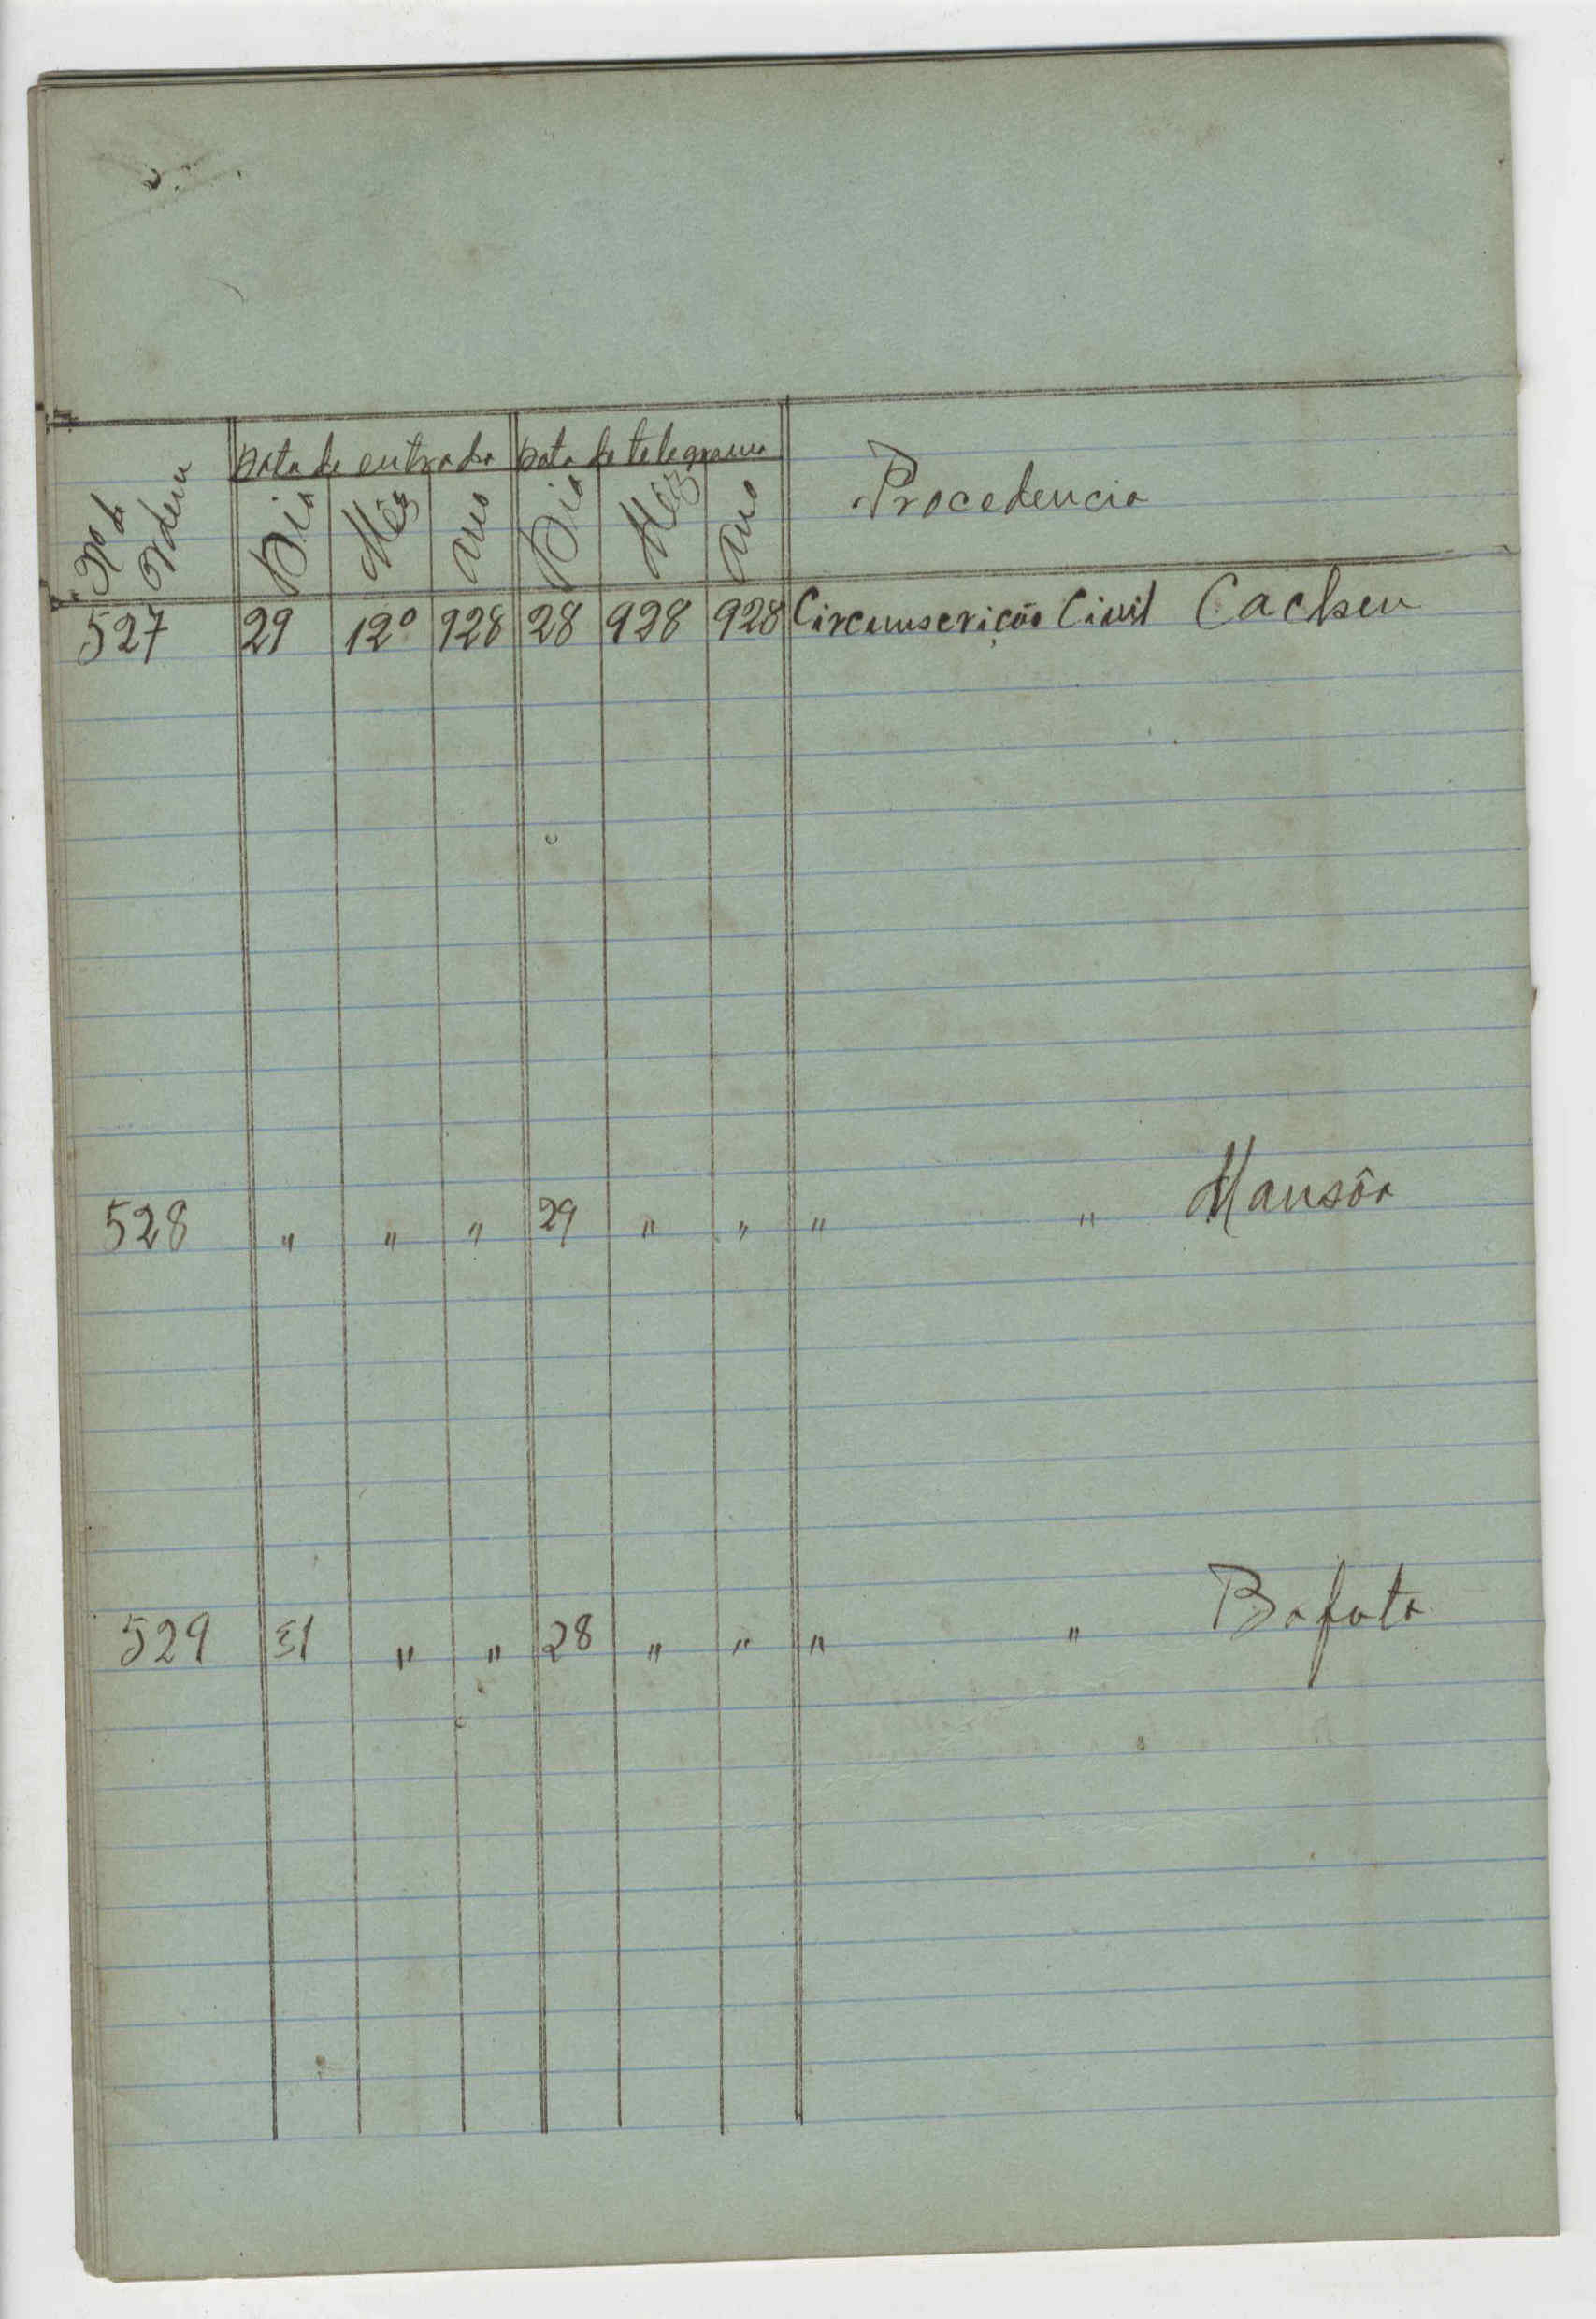 Nº de Ordem Data de entrada Data de telegrama Procedencia
Dia Mês Ano Dia Mês Ano
527 29 12º 928 28 928 928 Circumscrição Civil Cacheu
528 " " " 29 " " " " Mansôa
529 31 " " 28 " " " " Bafata